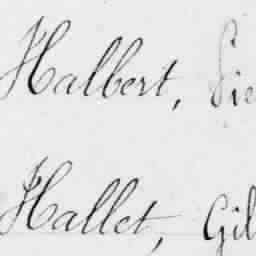 Halbert,
Hallet, Gil